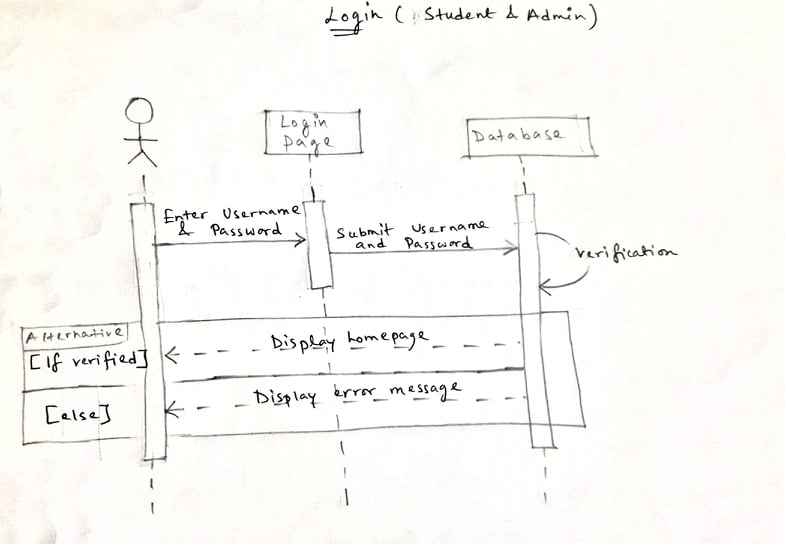 Login ( Student & Admin)
Login
Page
Database
Enter Username
& Password
Submit Username
and Password
verification
Alternative
[If verified]
Display homepage
Display error message
[else]